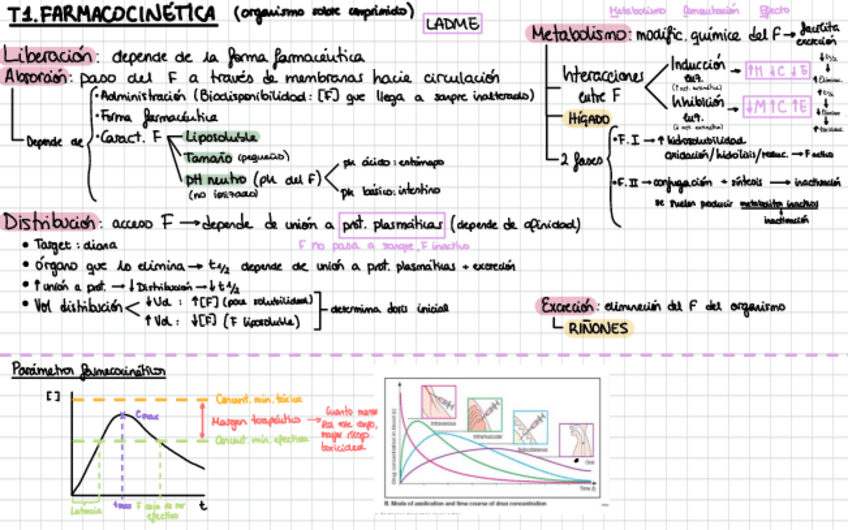 T1. FARMACOCINÉTICA (organismo sobre comprimido)
LADME
Liberación: depende de la forma farmacéutica
Absorción: paso del F a través de membranas hacia circulación
Depende de
• Administración (Biodisponibilidad: [F] que llega a sangre inalterado)
• Forma farmacéutica
• Caract. F
Liposoluble
Tamaño (pequeño)
pH neutro (pH del F)
(no ionizado)
pH ácido: estómago
pH básico: intestino
Distribución: acceso F → depende de unión a prot. plasmáticas (depende de afinidad)
F no pasa a sangre, F inactivo
• Target: diana
• Órgano que lo elimina → t1/2 depende de unión a prot. plasmáticas + excreción
• ↑ unión a prot. → ↓ Distribución → ↓ t1/2
• Vol distribución
↓ Vd: ↑[F] (poca solubilidad)
↑ Vd: ↓[F] (F liposoluble)
determina dosis inicial
Metabolismo Concentración Efecto
Metabolismo: modific. química del F → facilita
excreción
Interacciones
entre F
Inducción
↑M ↓C ↓E
Inhibición
↓M ↑C ↑E
HÍGADO
2 fases
• F. I → ↑ hidrosolubilidad
oxidación/hidólisis/reduc. → F activo
• F. II → conjugación + síntesis → inactivación
se suelen producir metabolitos inactivos
inactivación
Excreción: eliminación del F del organismo
RIÑONES
Parámetros farmacocinéticos
[ ]
Concent. min. tóxica
Cmax
Margen terapéutico →
Cuanto menor
sea este rango,
mayor riesgo
toxicidad
Concent. min. efectiva
Latencia
tmax
F deja de ser
efectivo
t
Drug concentration in blood (c)
Intravenous
Intramuscular
Subcutaneous
Oral
Time (t)
B. Mode of application and time course of drug concentration